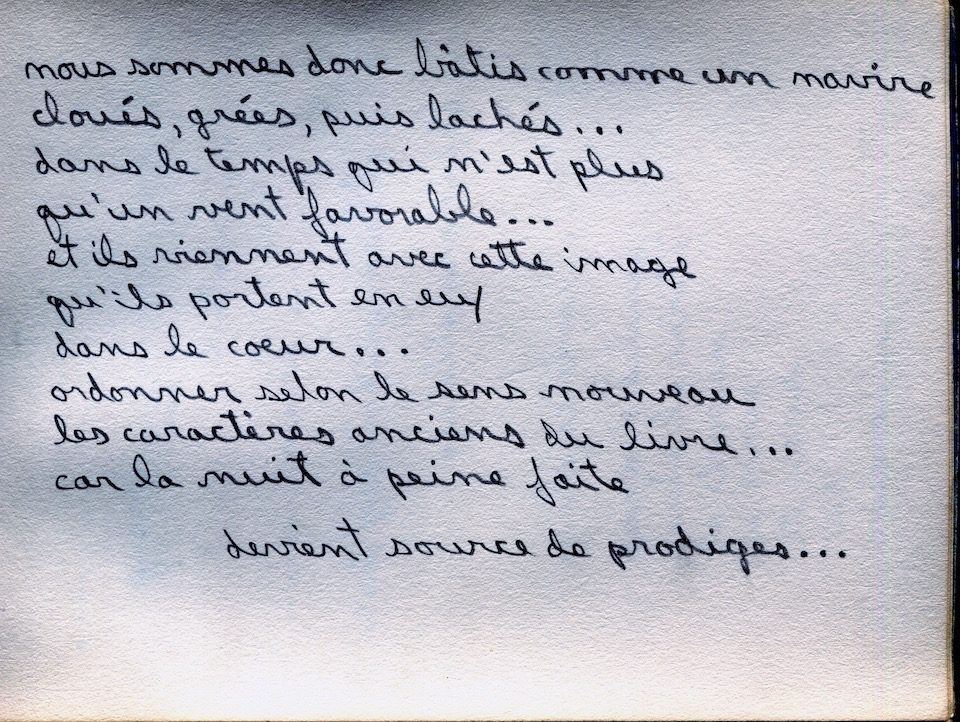 nous sommes donc bâtis comme un navire
cloués, grées, puis lachés...
dans le temps qui n'est plus
qu'un vent favorable...
et ils viennent avec cette image
qu'ils portent en eux
dans le coeur...
ordonner selon le sens nouveau
les caractères anciens du livre...
car la nuit à peine faite
devient source de prodiges...